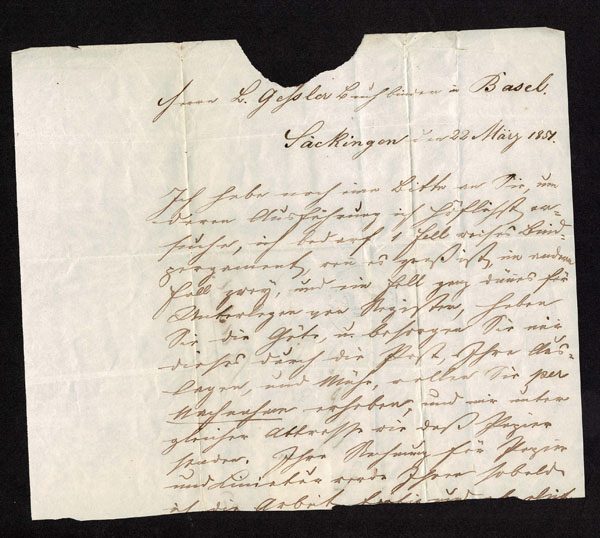 Herrn L. Gessler Buchbinder in Basel.
Säckingen den 22 März 1851.
Ich habe noch eine Bitte an Sie, um
deren Ausführung ich höflichst er-
suche, ich bedarf 1 Fell weises Bind-
pergament, wen es groß ist, im andern
Fall zwey, und ein Fell ganz dünes für
Unterlegen von Registern, haben
Sie die Güte, u. besorgen Sie mir
dieses durch die Post, Ihre Aus-
lagen, und Mühe, wollen Sie per
Nachnahme erheben, und mir unter
gleicher Attresse wie daß Papier
senden. Ihre Rechnung für Papier
und Liniatur werde Ihnen sobald
ist die Arbeit